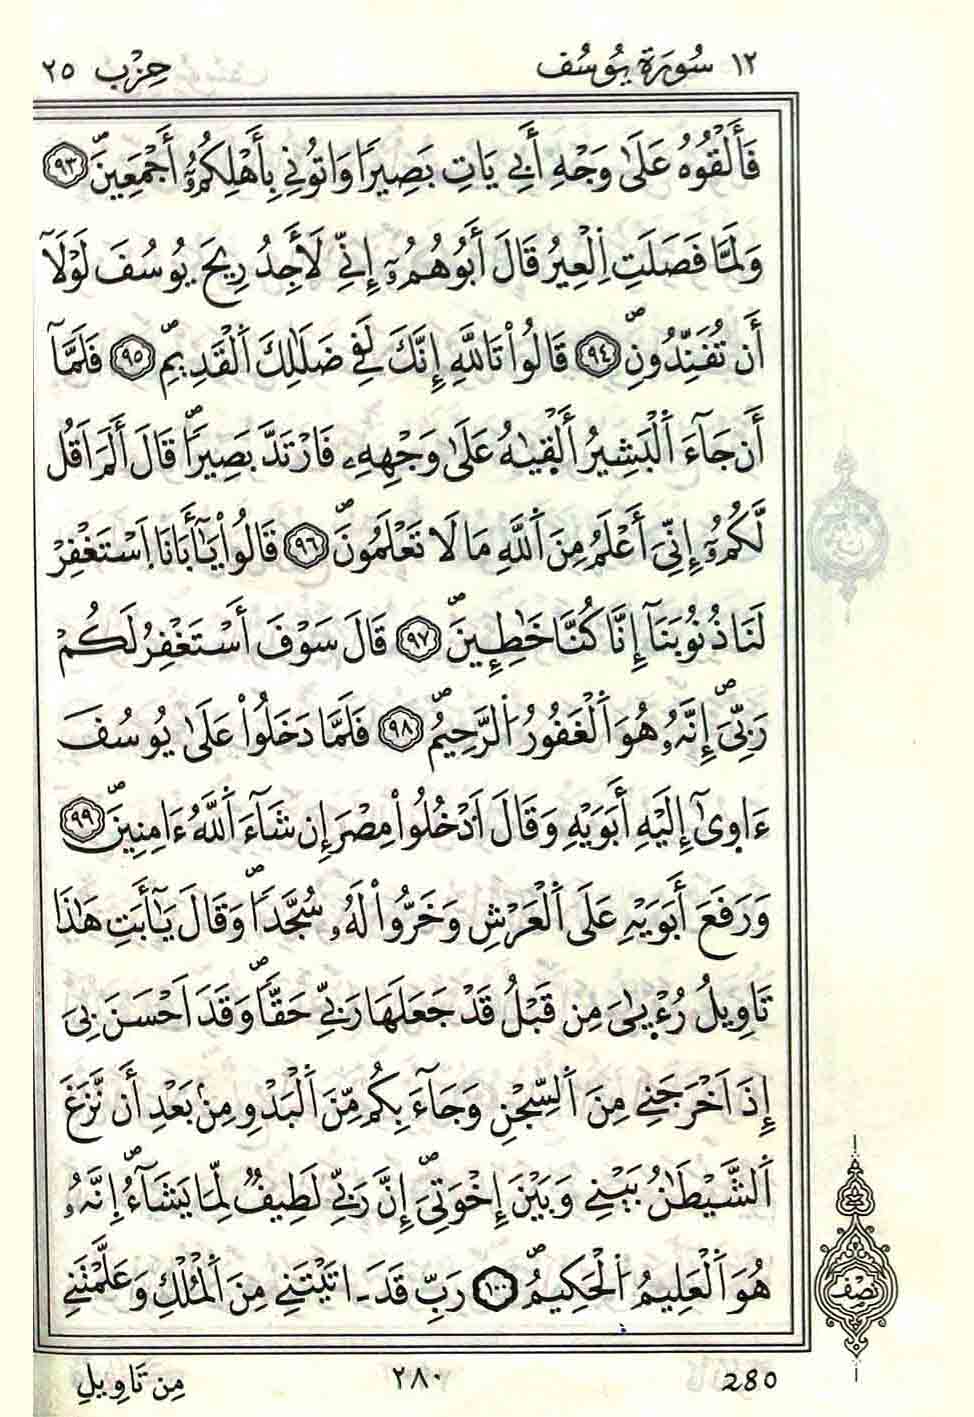 ١٢ سُورَةُ يُوسُف حِزْب ٢٥
فَأَلْقُوهُ عَلَىٰ وَجْهِ أَبِي يَاتِ بَصِيرًا وَاتُونِي بِأَهْلِكُمُۥٓ أَجْمَعِينَۖ ٩٣
وَلَمَّا فَصَلَتِ اِ۬لْعِيرُ قَالَ أَبُوهُمُۥٓ إِنِّي لَأَجِدُ رِيحَ يُوسُفَ لَوْلَآ
أَن تُفَنِّدُونِۖ ٩٤ قَالُواْ تَاللَّهِ إِنَّكَ لَفِي ضَلَٰلِكَ اَ۬لْقَدِيمِۖ ٩٥ فَلَمَّآ
أَن جَآءَ اَ۬لْبَشِيرُ أَلْقَىٰهُ عَلَىٰ وَجْهِهِۦ فَارْتَدَّ بَصِيرًاۖ قَالَ أَلَمَ اَقُل
لَّكُمُۥٓ إِنِّيَ أَعْلَمُ مِنَ اَ۬للَّهِ مَا لَا تَعْلَمُونَۖ ٩٦ قَالُواْ يَٰٓأَبَانَا اَ۪سْتَغْفِرْ
لَنَا ذُنُوبَنَآ إِنَّا كُنَّا خَٰطِـِٕينَۖ ٩٧ قَالَ سَوْفَ أَسْتَغْفِرُ لَكُمْ
رَبِّيَۖ إِنَّهُۥ هُوَ اَ۬لْغَفُورُ اُ۬لرَّحِيمُۖ ٩٨ فَلَمَّا دَخَلُواْ عَلَىٰ يُوسُفَ
ءَاوِىٰٓ إِلَيْهِ أَبَوَيْهِ وَقَالَ اَ۟دْخُلُواْ مِصْرَ إِن شَآءَ اَ۬للَّهُ ءَامِنِينَۖ ٩٩
وَرَفَعَ أَبَوَيْهِ عَلَى اَ۬لْعَرْشِ وَخَرُّواْ لَهُۥ سُجَّدًاۖ وَقَالَ يَٰٓأَبَتِ هَٰذَا
تَاوِيلُ رُءْيٜىَ مِن قَبْلُ قَدْ جَعَلَهَا رَبِّي حَقًّاۖ وَقَدَ اَحْسَنَ بِيَ
إِذَ اَخْرَجَنِي مِنَ اَ۬لسِّجْنِ وَجَآءَ بِكُم مِّنَ اَ۬لْبَدْوِ مِنۢ بَعْدِ أَن نَّزَغَ
اَ۬لشَّيْطَٰنُ بَيْنِي وَبَيْنَ إِخْوَتِيَۖ إِنَّ رَبِّي لَطِيفٌ لِّمَا يَشَآءُۖ اِنَّهُۥ
هُوَ اَ۬لْعَلِيمُ اُ۬لْحَكِيمُۖ ١٠٠ رَبِّ قَدَ ـ اتَيْتَنِي مِنَ اَ۬لْمُلْكِ وَعَلَّمْتَنِي
نِصْف
مِن تَاوِيلِ ٢٨٠ 280